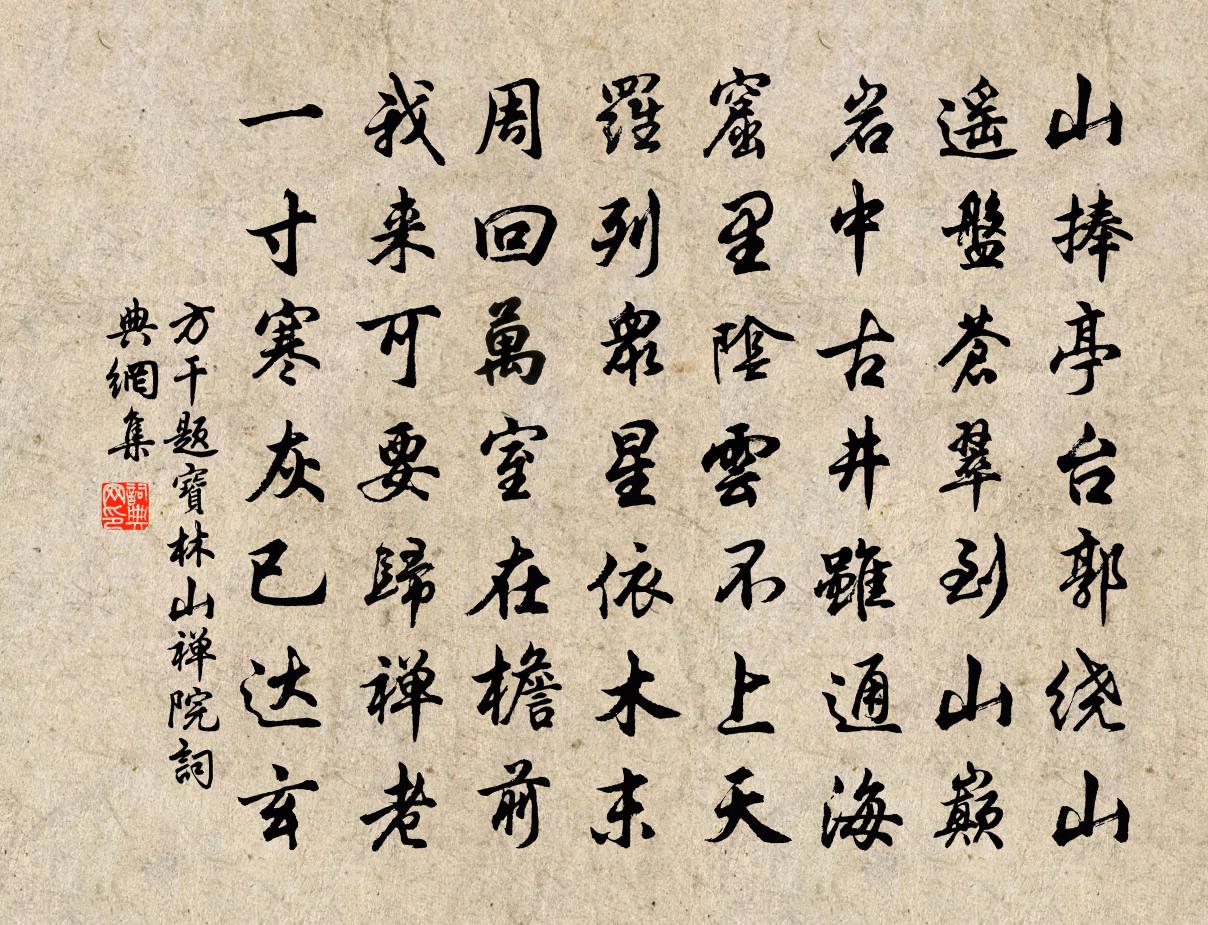 山捧亭台郭绕山
遥盤蒼翠到山巔
岩中古井雖通海
窟里陰雲不上天
羅列眾星依木末
周回萬室在檐前
我来可要歸禅老
一寸寒灰已达玄
方干题寶林山禅院詞
典網集
詞典
网印